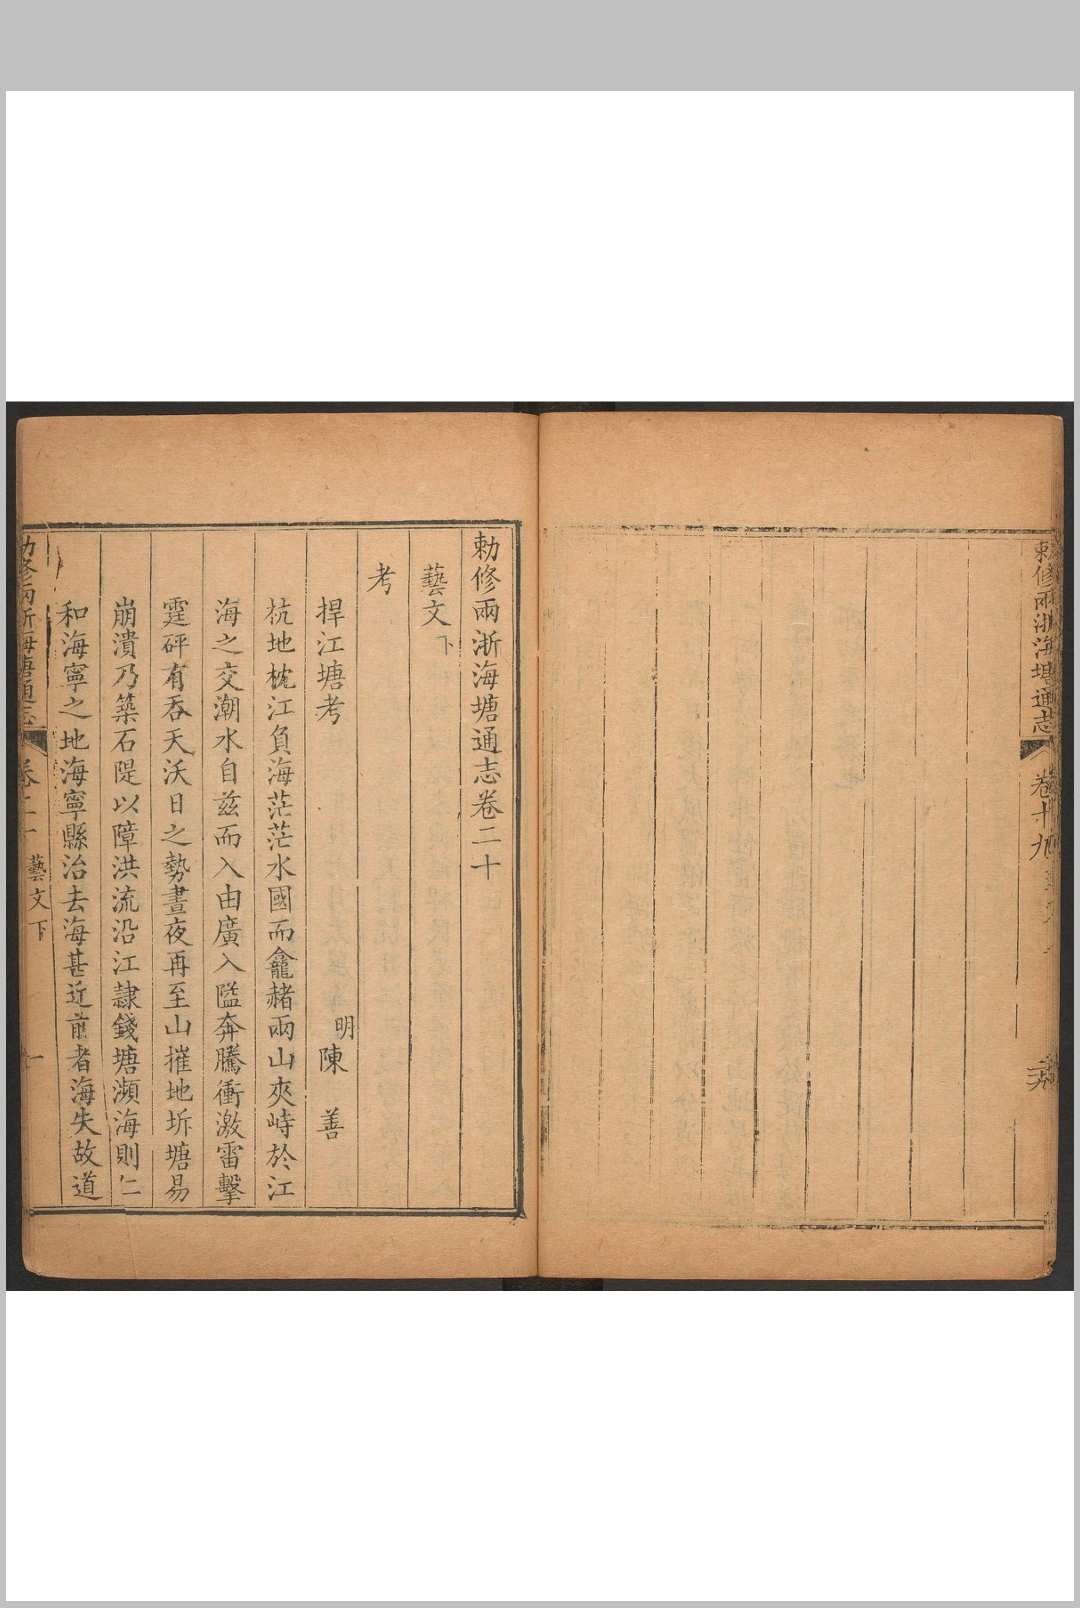 勅修兩浙海塘通志
卷十九
勅修兩浙海塘通志卷二十
藝文下
考
捍江塘考
明陳善
杭地枕江負海茫茫水國而龕赭兩山夾峙於江
海之交潮水自茲而入由廣入隘奔騰衝激雷擊
霆砰有吞天沃日之勢晝夜再至山摧地坼塘易
崩潰乃築石隄以障洪流沿江隷錢塘瀕海則仁
和海寧之地海寧縣治去海甚近前者海失故道
勅修兩浙海塘通志
卷二十
藝文下
一